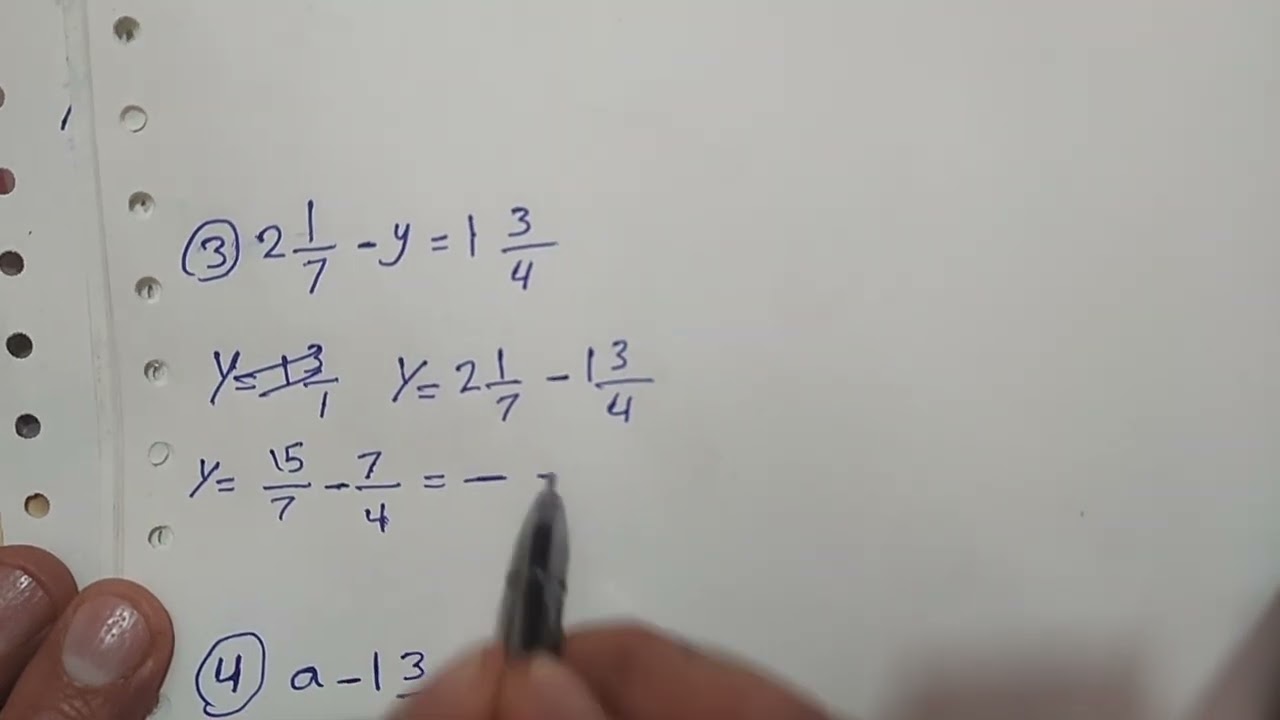 ③ 2 1/7 - y = 1 3/4
y = 2 1/7 - 1 3/4
y = 15/7 - 7/4 = — -
④ a - 1 3